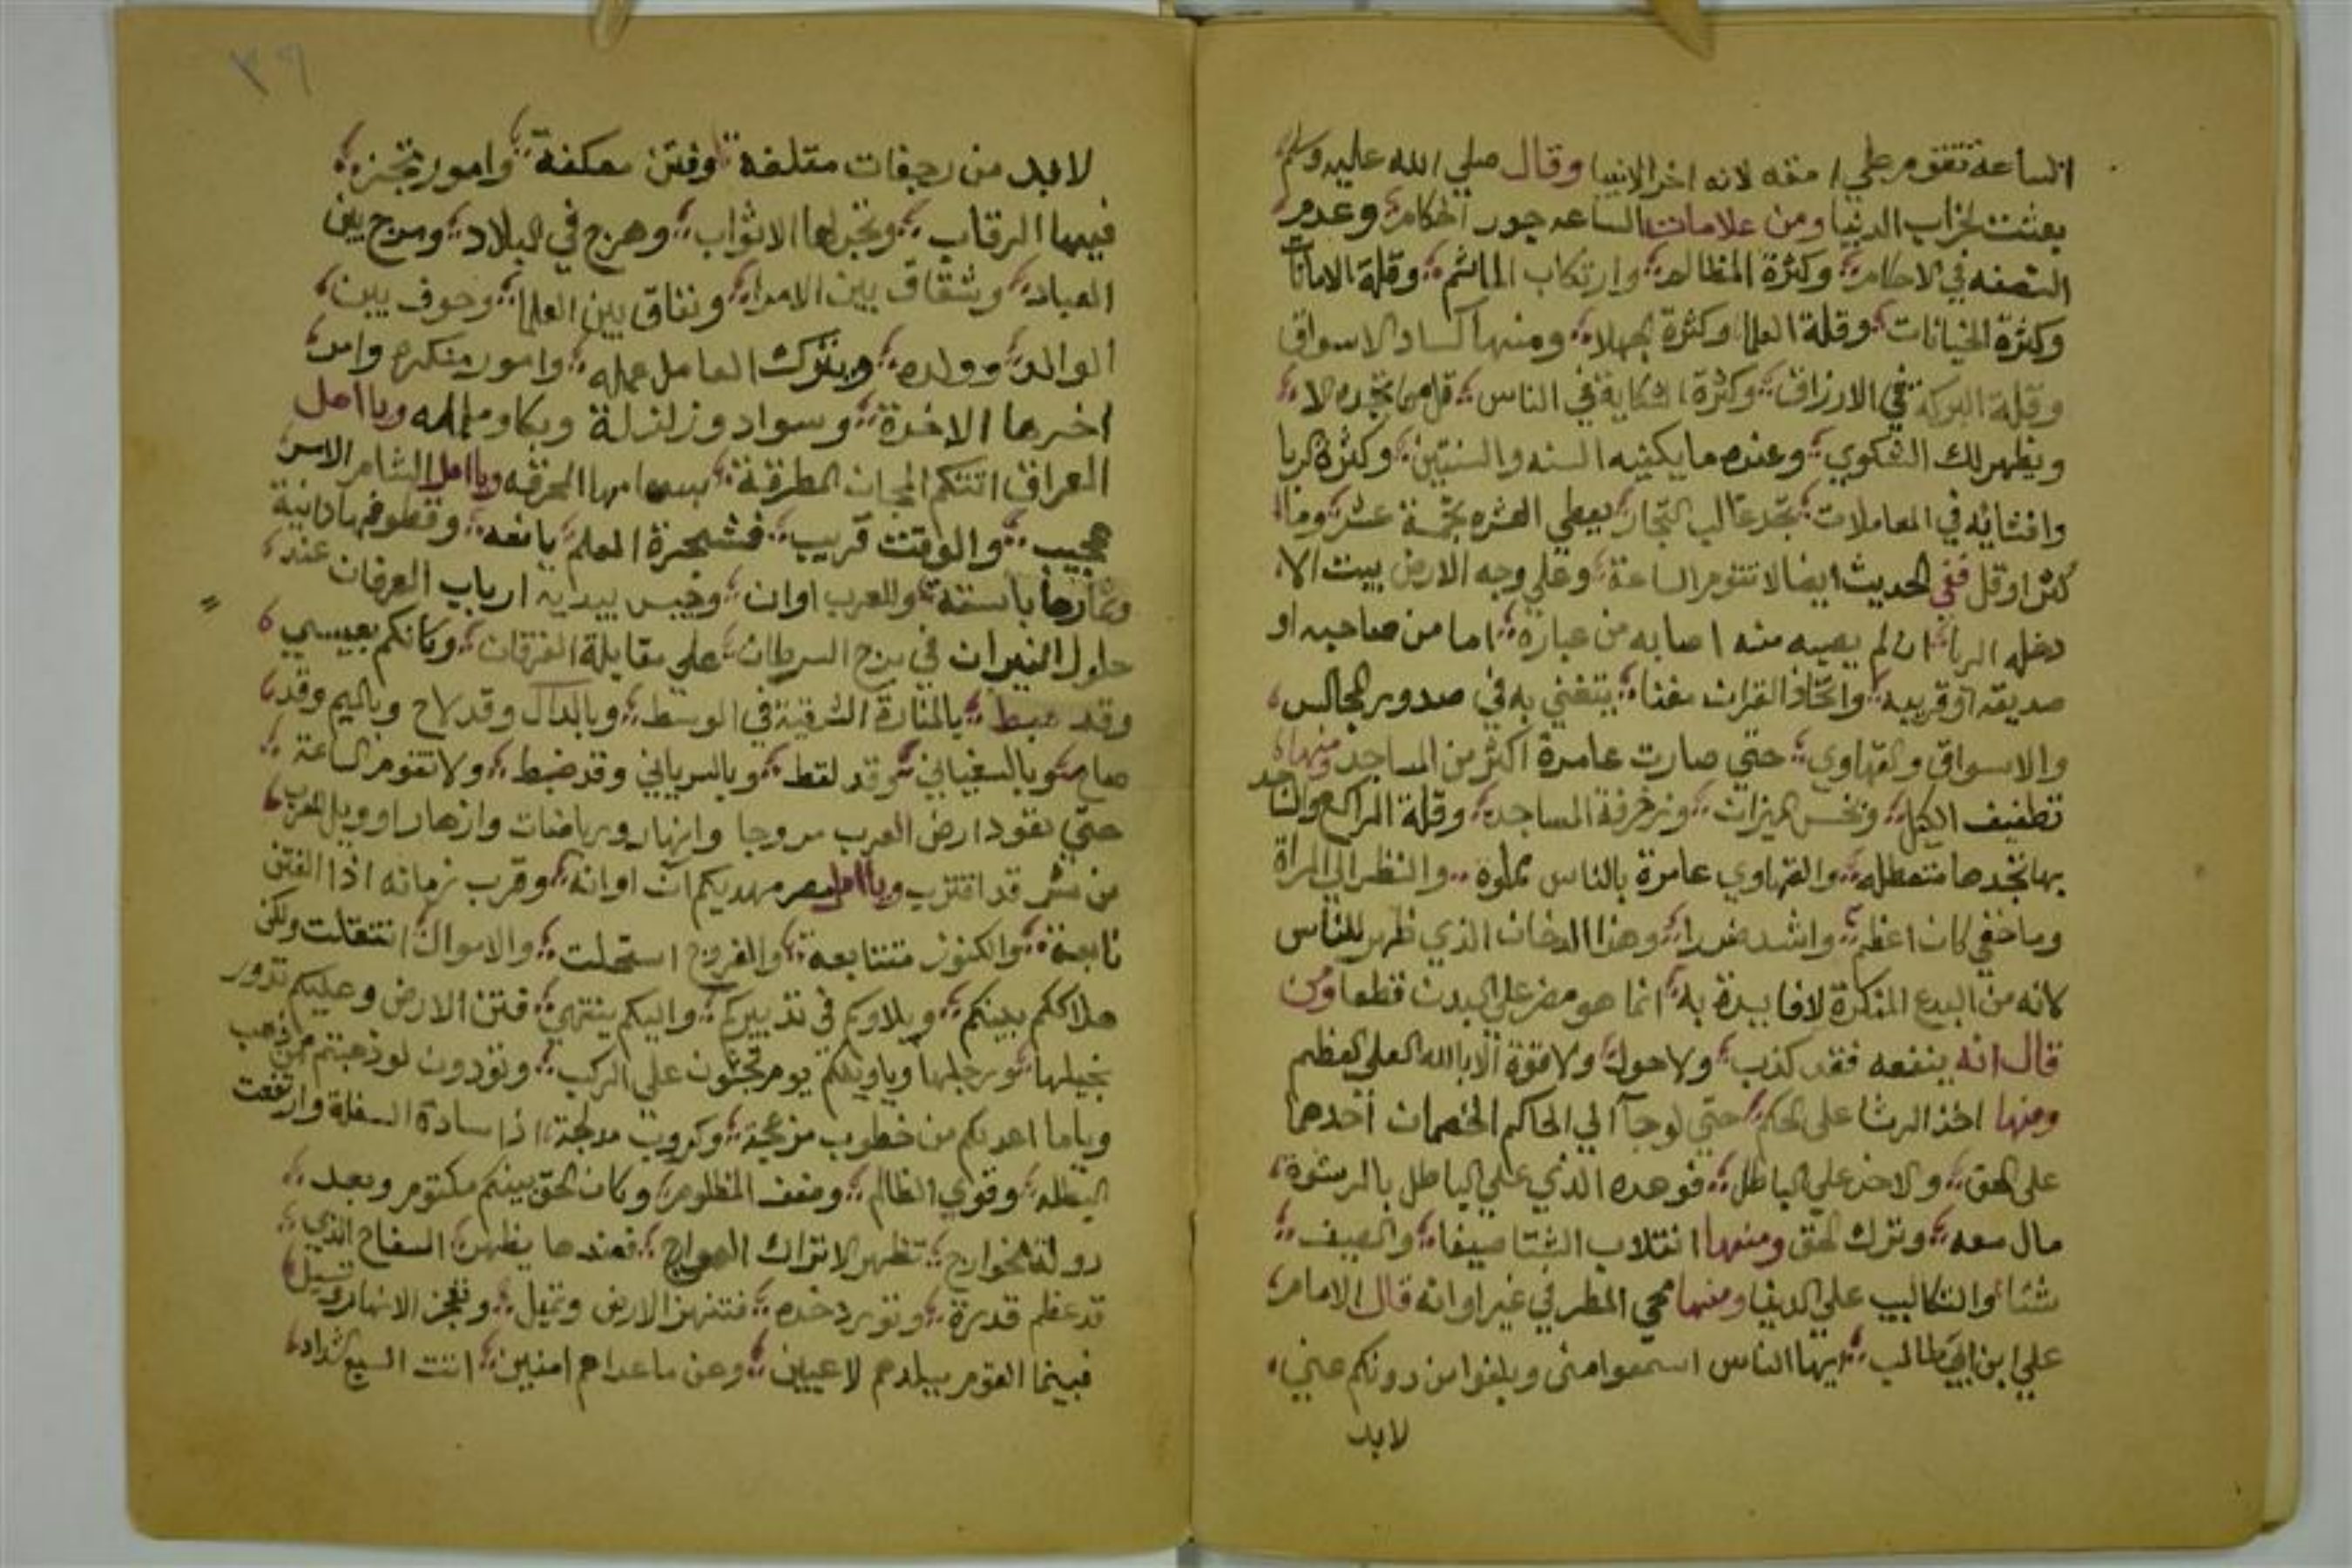 الساعة تقوم علي امته لانه اخر الانبيا وقال صلي الله عليه وسلم
بعثت لخراب الدنيا ومن علامات الساعه جور الحكام وعدم
النصفه في الاحكام وكثرة المظالم وارتكاب الماثم وقلة الامانات
وكثرة الخيانات وقلة العلما وكثرة الجهلاء ومنها كساد الاسواق
وقلة البركة في الارزاق وكثرة الشكاية في الناس قل من تجده الا
ويظهر لك الشكوي وعنده ما يكفيه السنه والسنتين وكثرة الربا
وافشائه في المعاملات تجد غالب التجار يعطي العشره بخمسة عشر وما
كثر او قل ففي الحديث ايضا لا تقوم الساعة وعلي وجه الارض بيت الا
دخله الربا ان لم يصيبه منه اصابه من غباره اما من صاحبه او
صديقه او قريبه واتخاذ القران مغنا يتغني به في صدور المجالس
والاسواق والقهاوي حتي صارت عامرة اكثر من المساجد ومنها
تطفيف الكيل وبخس الميزان وزخرفة المساجد وقلة الراكع والساجد
بها تجدها متعطله والقهاوي عامرة بالناس مملوة والنظر الي المراة
وما خفي كان اعظم واشد ضررا وهذا الدخان الذي ظهر للناس
لانه من البدع المنكرة لا فايدة به انما هو مضر علي البدن قطعا ومن
قال انه ينفعه فقد كذب ولا حول ولا قوة الا بالله العلي العظيم
ومنها اخذ الرشا على الحكم حتي لو جآ الي الحاكم الخصمان احدهما
على الحق والاخر علي الباطل فوعده الذي علي الباطل بالرشوة
مال معه وترك الحق ومنها انقلاب الشتا صيفا والصيف
شتاء والتكاليب علي الدنيا ومنها مجي المطر في غير اوانه قال الامام
علي ابن ابي طالب ايها الناس اسمعوا مني وبلغوا من دونكم عني
لابد
٣٩
لابد من رجفات متلفه وفتن معكفة وامور تجز
فيها الرقاب وتخبرلها الاثواب وهرج في البلاد ومرج بين
العباد وشقاق بين الامرا ونفاق بين العلما وخوف بين
الوالد وولده ويترك العامل عمله وامور منكره وامر
اخرها الاخرة وسواد وزلزلة وبكا ويا اهل
العراق اتتكم المجان المطرقة المحرقه ويا اهل الشام الامر
عجيب والوقت قريب فشجرة العلم يانعه وقطوفها دانية
وثمارها باسقة والعرب اوان ارباب العرفان عند
حلول النيران في برج السرطان علي مقابلة الفرقان وكانكم بعيسي
وقد هبط بالمنارة الشرقية في الوسط وبالدال وقد لاح وبالميم وقد
صاح وبالسفياني وقد لقط وبالسرياني وقد ضبط ولا تقوم الساعة
حتي تعود ارض العرب مروجا وانهار ورياضات وازهارا وويل للعرب
من شر قد اقترب ويا اهل مصر مهديكم آن اوانه وقرب زمانه اذا الفتن
والكنوز متتابعة والفروج استحلت والاموال انتقلت ولكن
هلاككم بينكم وبلاوكم في تدبيركم واليكم ينتهي فتن الارض وعليكم تدور
بخيلها ورجلها وياويلكم يوم تجثون علي الركب وتودون لو ذهبتم مع من ذهب
وياما اعدلكم من خطوب مزعجة وكروب مدلجة اذا سادة السفلة وارتفعت
وقوي الظالم وضعف المظلوم وكان الحق بينكم مكتوم وبعد
دولة الخوارج تظهر الاتراك فعندها يظهر السفاح الذي
قد عظم قدره وتورد خده فتهتز الارض وتميل وتفجر الانهار وتسيل
فبينما القوم ببلدهم لاعيين وعن ما عداهم امنين اتت السبع الشداد